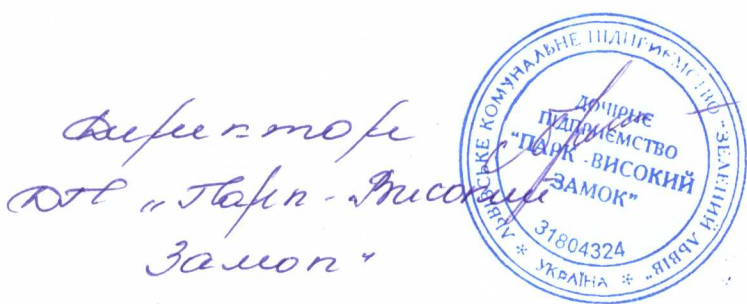 Директор
ДП „Парк-Високий
Замок"
ЛЬВІВСЬКЕ КОМУНАЛЬНЕ ПІДПРИЄМСТВО "ЗЕЛЕНИЙ ЛЬВІВ"
* УКРАЇНА *
ДОЧІРНЄ
ПІДПРИЄМСТВО
"ПАРК-ВИСОКИЙ
ЗАМОК"
31804324